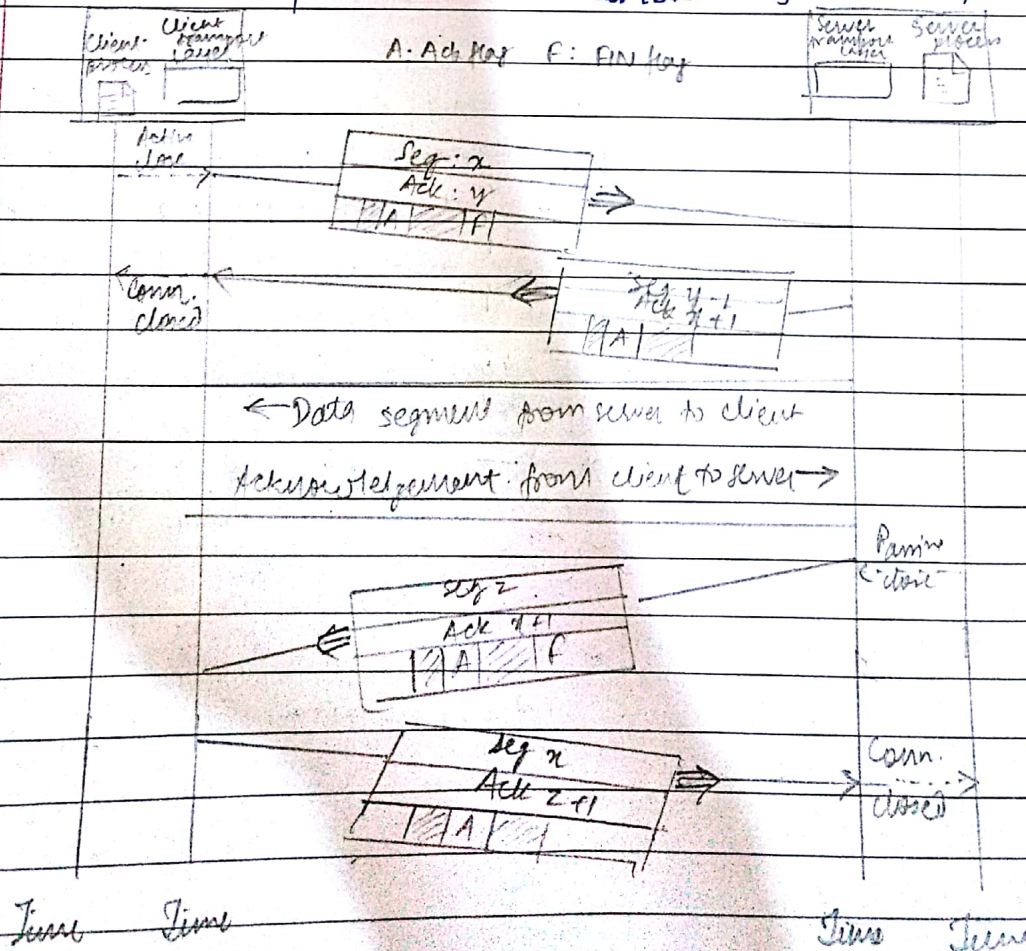 Client Process
Client transport layer
A: Ack flag F: FIN flag
Server transport layer
Server process
Active close
Seq: x
Ack: y
A F
Conn. closed
Seq y-1
Ack x+1
A
←Data segment from server to client
Acknowledgement from client to server→
Passive close
Seq z
Ack x+1
A F
Seq x
Ack z+1
A
Conn. closed
Time Time Time Time